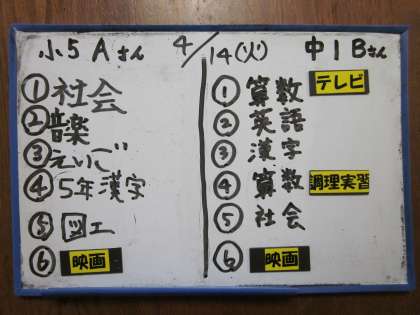 小5 Aさん 4/14(火) 中1 Bさん
①社会
②音楽
③えいご
④5年漢字
⑤図工
⑥映画
①算数 テレビ
②英語
③漢字
④算数 調理実習
⑤社会
⑥映画